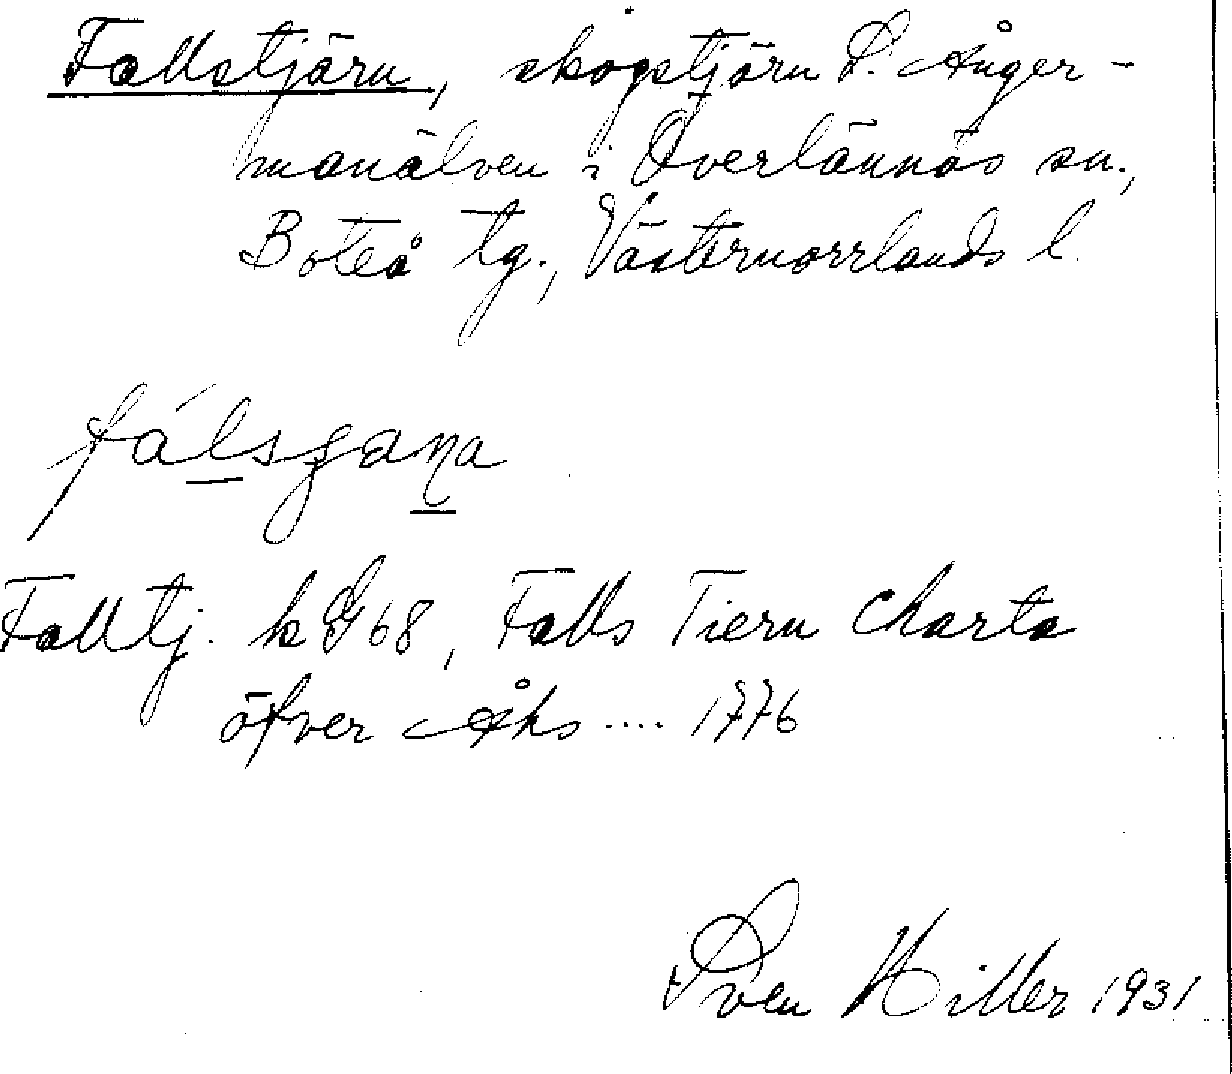 Fallstjärn, skogstjärn S. Ånger-
manälven i Överlännäs sn.,
Boteå tg., Västernorrlands l.
fálsʒaṇa
Falltj. k G 68, Falls Tiern Charta
öfver Åhs .... 1776
Sven Hiller 1931